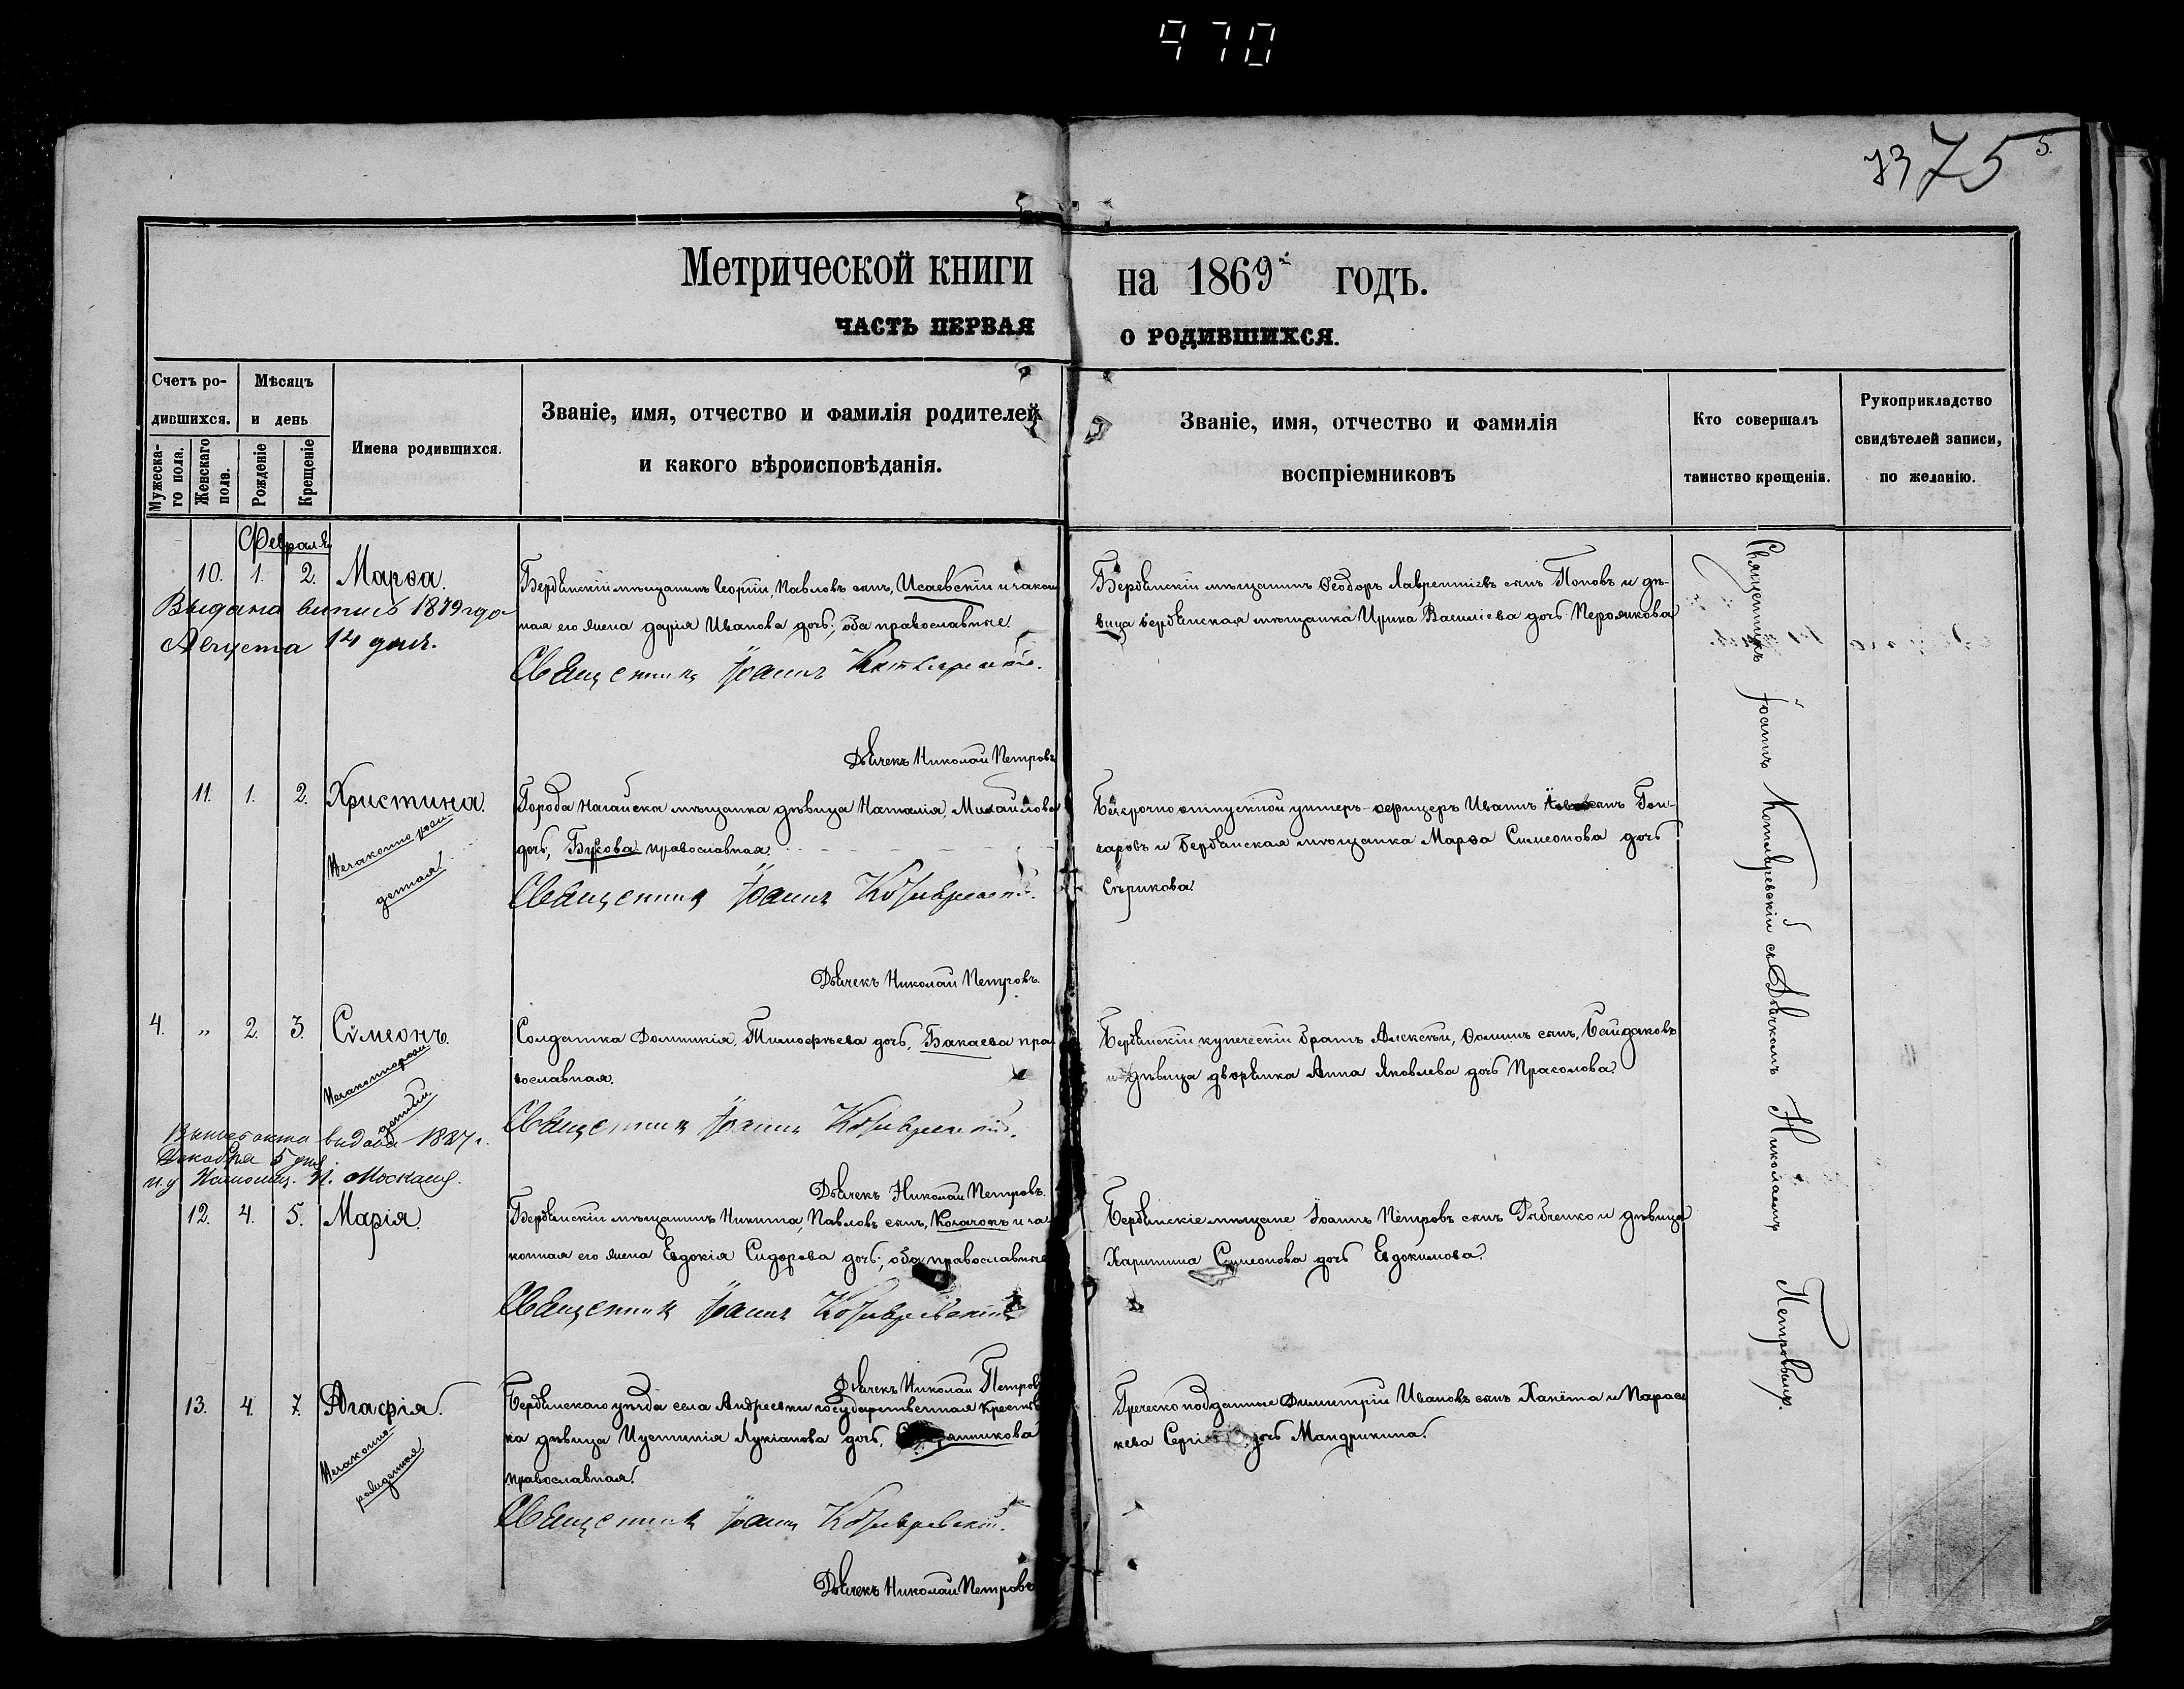 970
73 75 5.
Метрической книги на 1869й годъ.
ЧАСТЬ ПЕРВАЯ О РОДИВШИХСЯ.
Счетъ ро-
дившихся.
Мужеска-
го пола.
Женскаго
пола.
Мѣсяцъ
и день
Рожденіе
Крещеніе
Имена родившихся.
Званіе, имя, отчество и фамилія родителей
и какого вѣроисповѣданія.
Званіе, имя, отчество и фамилія
воспріемниковъ
Кто совершалъ
таинство крещенія.
Рукоприкладство
свидѣтелей записи,
по желанію.
Февраля
10. 1. 2. Марѳа.
Выдана выпись 1879 года
Августа 14 дня.
Бердянскій мѣщанинъ Георгій, Павловъ сынъ, Исаевскій и закон-
ная его жена Дарія Иванова дочь; оба православные
Священникъ Іоаннъ Котляревскій.
Дьячекъ Николай Петровъ
Бердянскій мѣщанинъ Ѳеодоръ Лаврентіевъ сынъ Поповъ и дѣ-
вица бердянская мѣщанка Ирина Василіева дочь
11. 1. 2. Христина.
Незаконно рож-
денная
Города Нагайска мѣщанка дѣвица Наталія, Михайлова
дочь, Букова православная,
Священникъ Іоаннъ Котляревскій.
Дьячекъ Николай Петровъ.
Безсрочно отпускной унтеръ-офицеръ Иванъ сынъ Гон-
чаровъ и Бердянская мѣщанка Марѳа Симеонова дочь
Сѣрикова
4. " 2. 3. Сѵмеонъ.
Незаконнорож-
денный
Выпись выдана 1887 г.
Декабря 5 дня
Солдатка Домникія, Тимоѳѣева дочь, Бакаева пра-
вославная.
Священникъ Іоаннъ Котляревскій.
Дьячекъ Николай Петровъ.
Бердянскій купеческій братъ Алексѣй, Ѳоминъ сынъ, Байдаковъ
и дѣвица дворянка Анна Яковлева дочь Прасолова.
12. 4. 5. Марія.
Бердянскій мѣщанинъ Никита, Павловъ сынъ, Козачокъ и за-
конная его жена Евдокія Сидорова дочь; оба православные
Священникъ Іоаннъ Котляревскій
Дьячекъ Николай Петровъ
Бердянскіе мѣщане Іоаннъ Петровъ сынъ Рябченко и дѣвица
Харитина Симеонова дочь Евдокимова.
13. 4. 7. Агафія.
Незаконно-
рожденная
Бердянскаго уѣзда села Андреевки государственная крестьян-
ка дѣвица Иустинія Лукіанова дочь,
православная.
Священникъ Іоаннъ Котляревскій.
Дьячекъ Николай Петровъ
Греческо подданные Димитрій Ивановъ сынъ Ханёта и Параск-
кева Сергіева дочь Мандрикина.
Священникъ Іоаннъ Котляревскій съ Дьячкомъ Николаемъ Петровымъ.